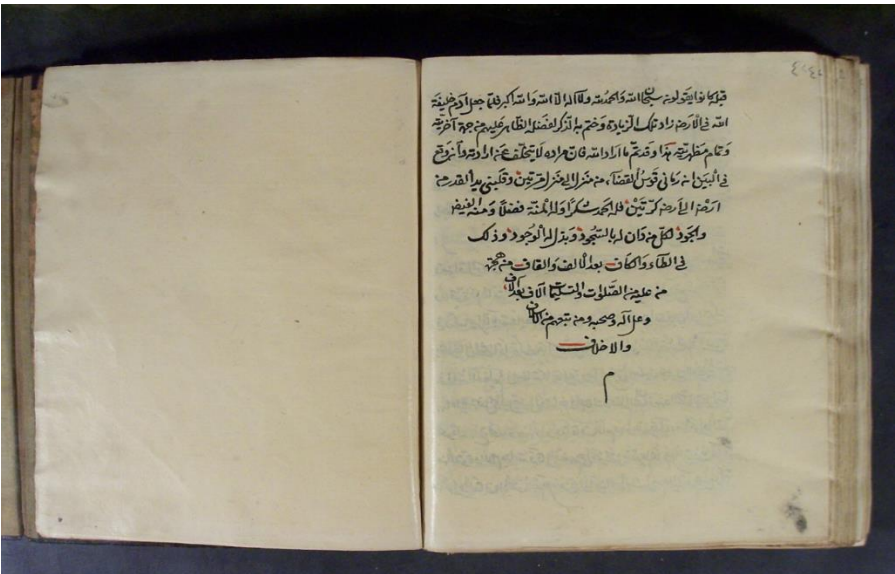 قبله كانوا يقولونه سبحان الله والحمد لله ولا اله الا الله والله اكبر فلما جعل آدم خليفة
الله في الارض زاد تلك الزيادة وختم به الذكر لفضله الظاهر عليهم من جهة آخريته
وتمام مظهريته هذا وقد تم ما اراد الله فان مراده لا يتخلف عن ارادته وان وقع
في البين انه رماني قوس القضاء من منزل الى منزل مرتين وقلبني يد القدر من
ارض الى ارض كرتين فله الحمد شكرا وله المنة فضلا ومنه الفيض
والجود لكل من دان له بالسجود وبذل له الوجود وذلك
في الطاء والكاف بعد الالف والقاف من هجرة
من عليه من الصلوات والتسليمات آلاف بعد آلاف
وعلى آله وصحبه ومن تبعهم من
والاخلاف
م